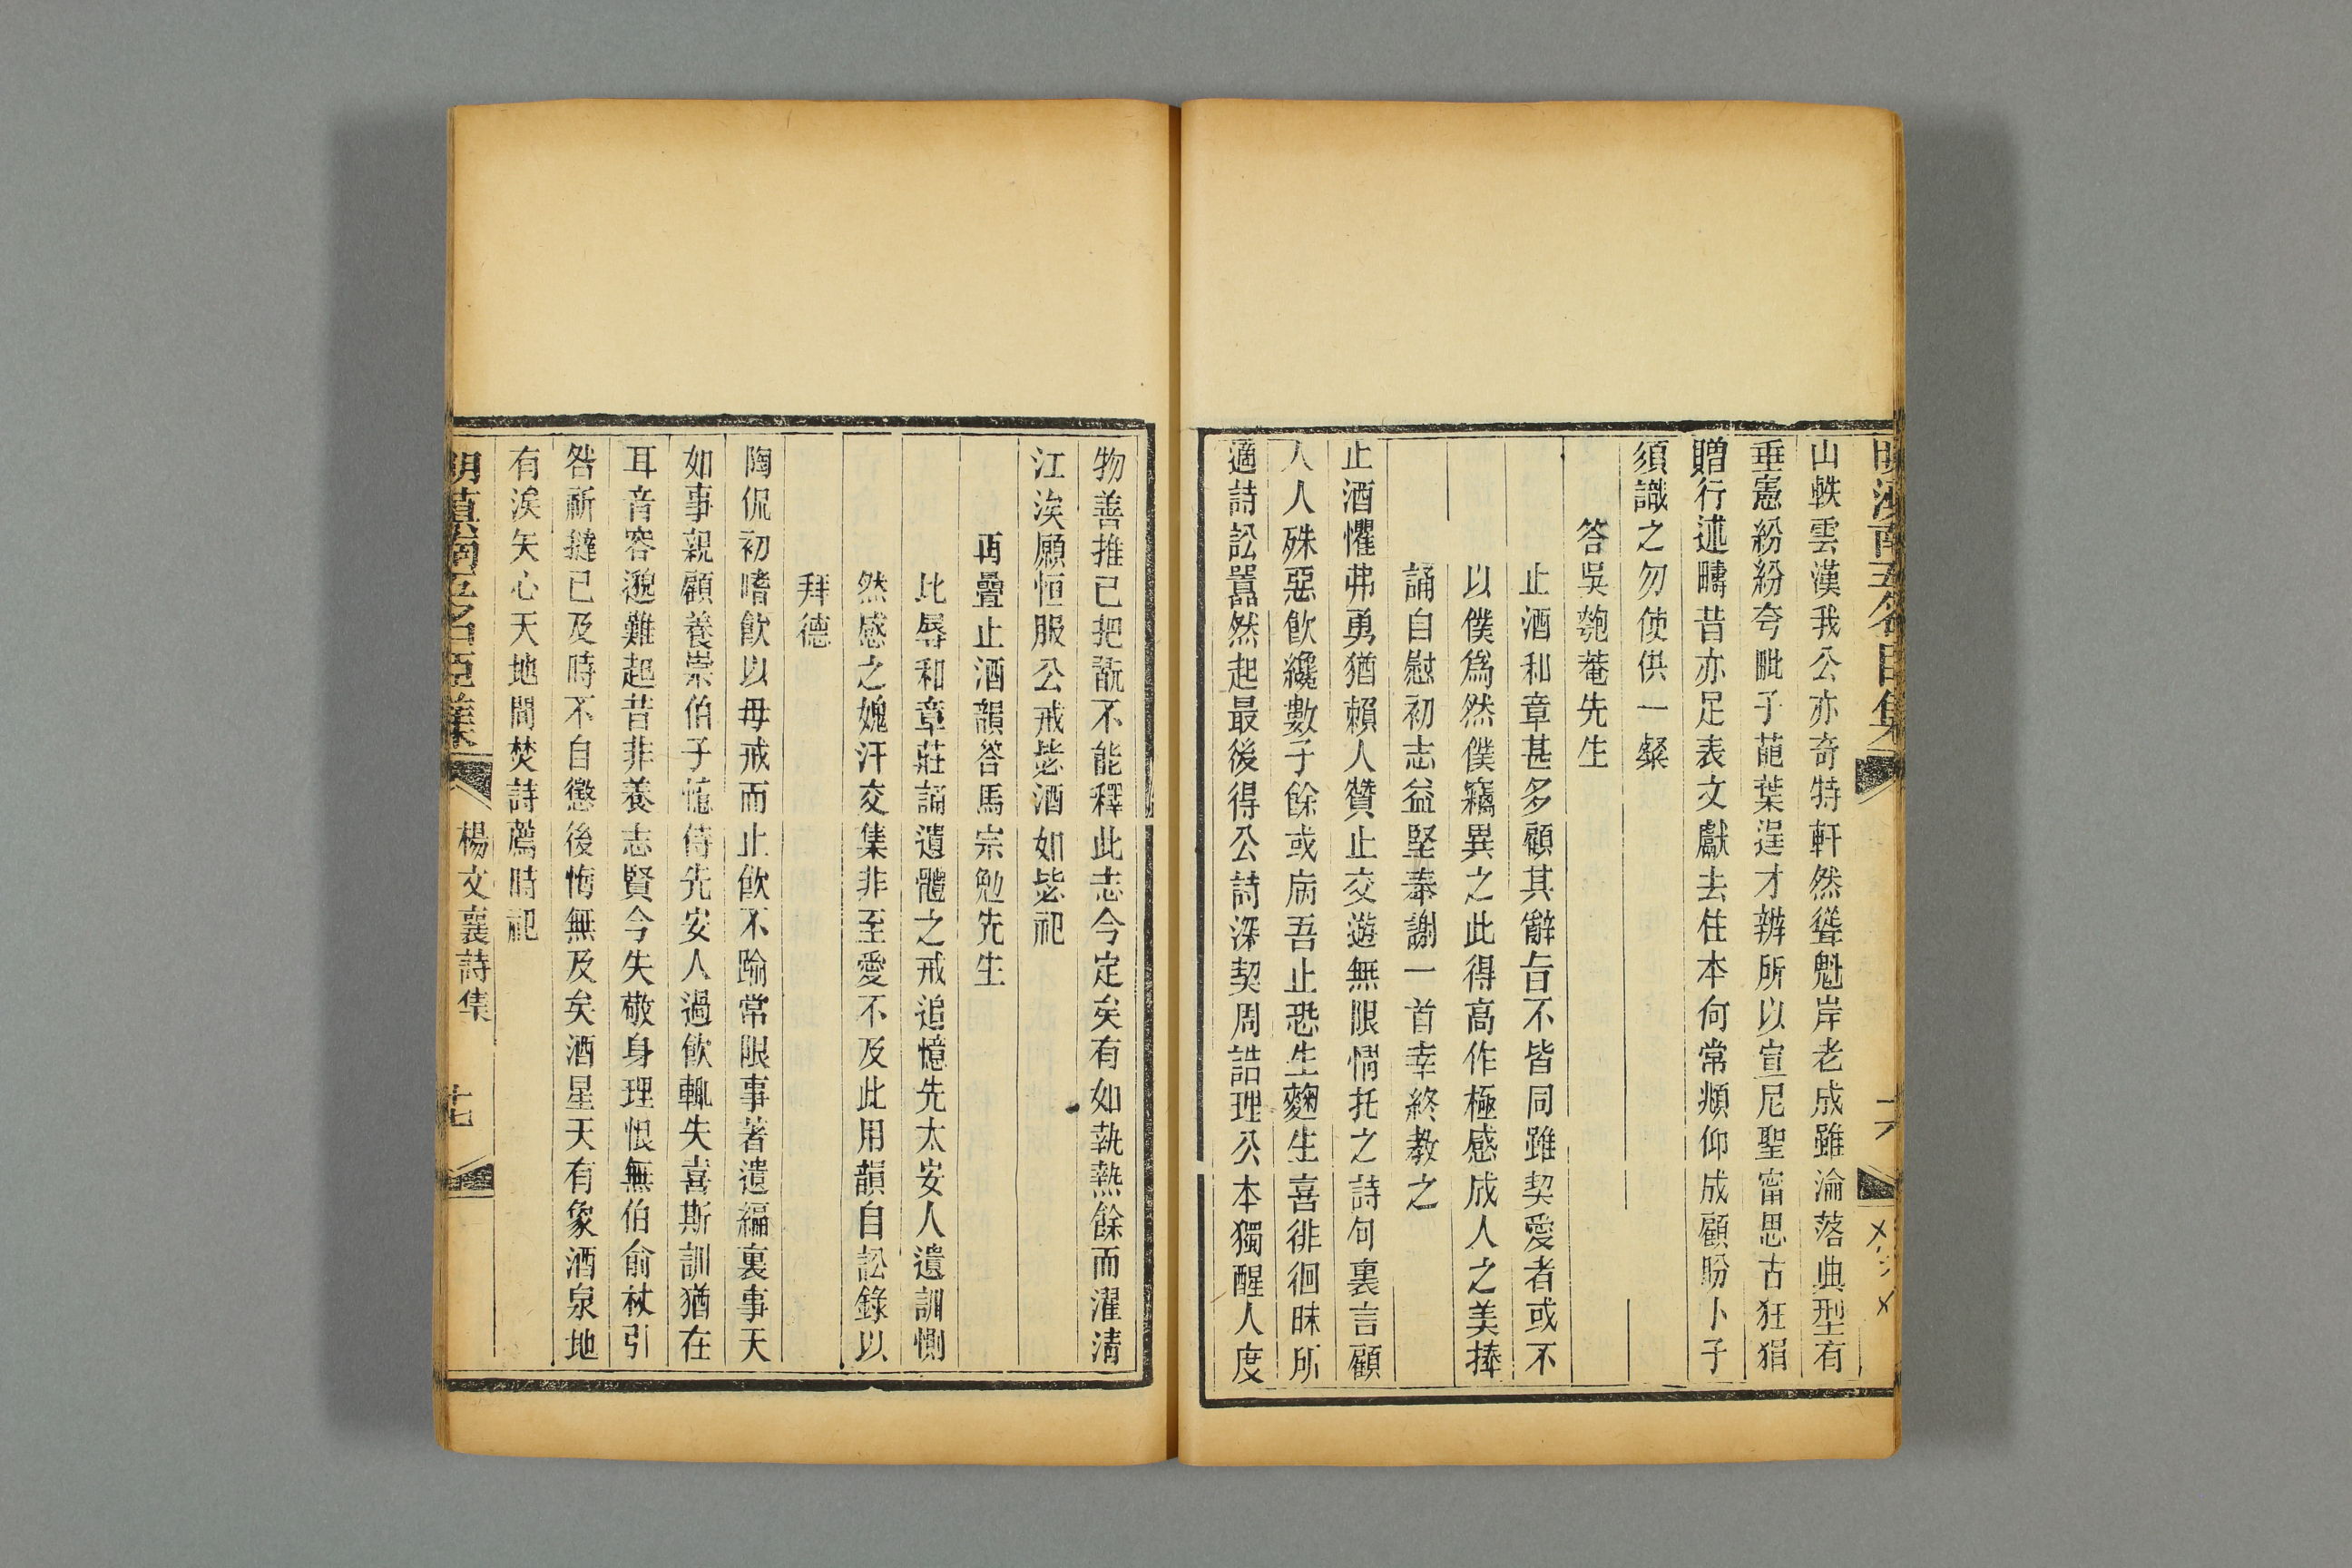 山軼雲漢我公亦奇特軒然聳魁岸老成雖淪落典型有
垂憲紛紛夸毗子葩葉逞才辨所以宣尼聖甯思古狂狷
贈行述疇昔亦足表文獻去住本何常頫仰成顧盼卜子
須識之勿使供一粲
答吳匏菴先生
止酒和章甚多顧其辭旨不皆同雖契愛者或不
以僕爲然僕竊異之此得高作極感成人之美捧
誦自慰初志益堅奉謝一首幸終教之
止酒懼弗勇猶賴人贊止交遊無限情托之詩句裏言顧
人人殊惡飲纔數子餘或病吾止恐生麴生喜徘徊昧所
適詩訟囂然起最後得公詩深契周誥理公本獨醒人度
物善推已把翫不能釋此志今定矣有如執熱餘而濯清
江涘願恒服公戒毖酒如毖祀
再疊止酒韻答馬宗勉先生
比辱和章莊誦遺體之戒追憶先太安人遺訓惻
然感之媿汗交集非至愛不及此用韻自訟錄以
拜德
陶侃初嗜飲以母戒而止飲不踰常限事著遺編裏事天
如事親顧養崇伯子憶侍先安人過飲輒失喜斯訓猶在
耳音容邈難起昔非養志賢今失敬身理恨無伯俞杖引
咎祈撻已及時不自懲後悔無及矣酒星天有象酒泉地
有涘矢心天地間焚詩薦時祀
楊文襄詩集